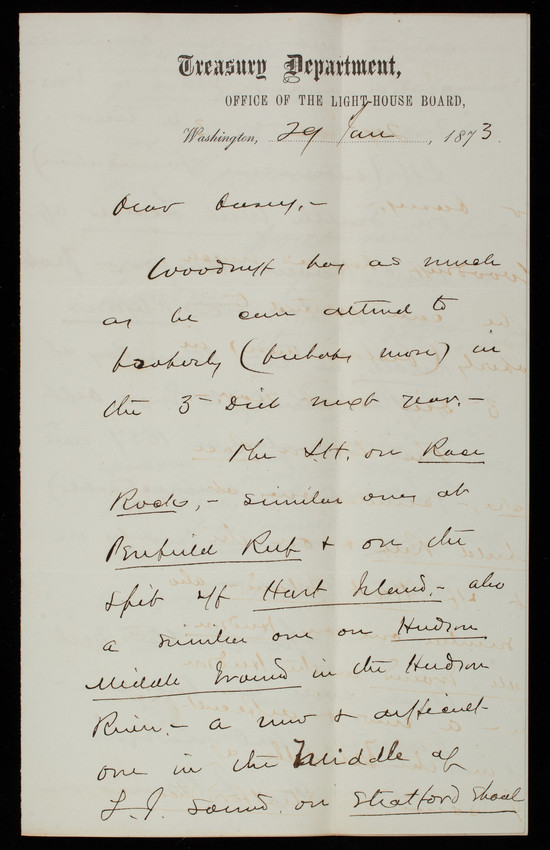 Treasury Department,
OFFICE OF THE LIGHT-HOUSE BOARD,
Washington, 29 Jan, 1873.
Dear Casey,-
Woodruff has as much
as he can attend to
properly (perhaps more) in
the 3d Dist next year.-
The L.H. on Race
Rock,- similar ones at
Penfield Reef & on the
Spit off Hart Island,- also
a similar one on Hudson
Middle Ground in the Hudson
River,- a new & difficult
one in the Middle of
L.I. Sound on Stratford Shoal